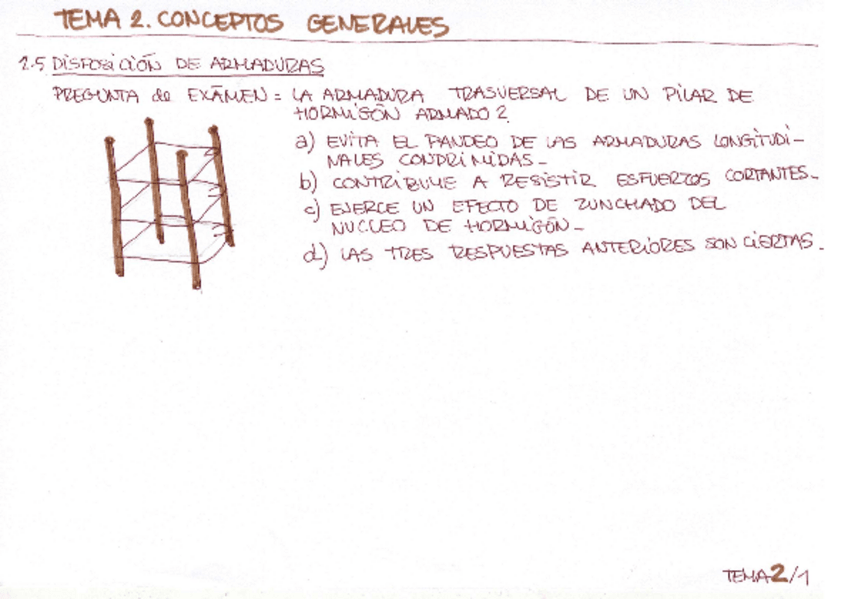 TEMA 2. CONCEPTOS GENERALES
2.5 DISPOSICIÓN DE ARMADURAS
PREGUNTA de EXÁMEN = LA ARMADURA TRASVERSAL DE UN PILAR DE
HORMIGÓN ARMADO?
a) EVITA EL PANDEO DE LAS ARMADURAS LONGITUDI-
NALES COMPRIMIDAS-
b) CONTRIBUYE A RESISTIR ESFUERZOS CORTANTES-
c) EJERCE UN EFECTO DE ZUNCHADO DEL
NUCLEO DE HORMIGÓN-
d) LAS TRES RESPUESTAS ANTERIORES SON CIERTAS.
TEMA 2/1